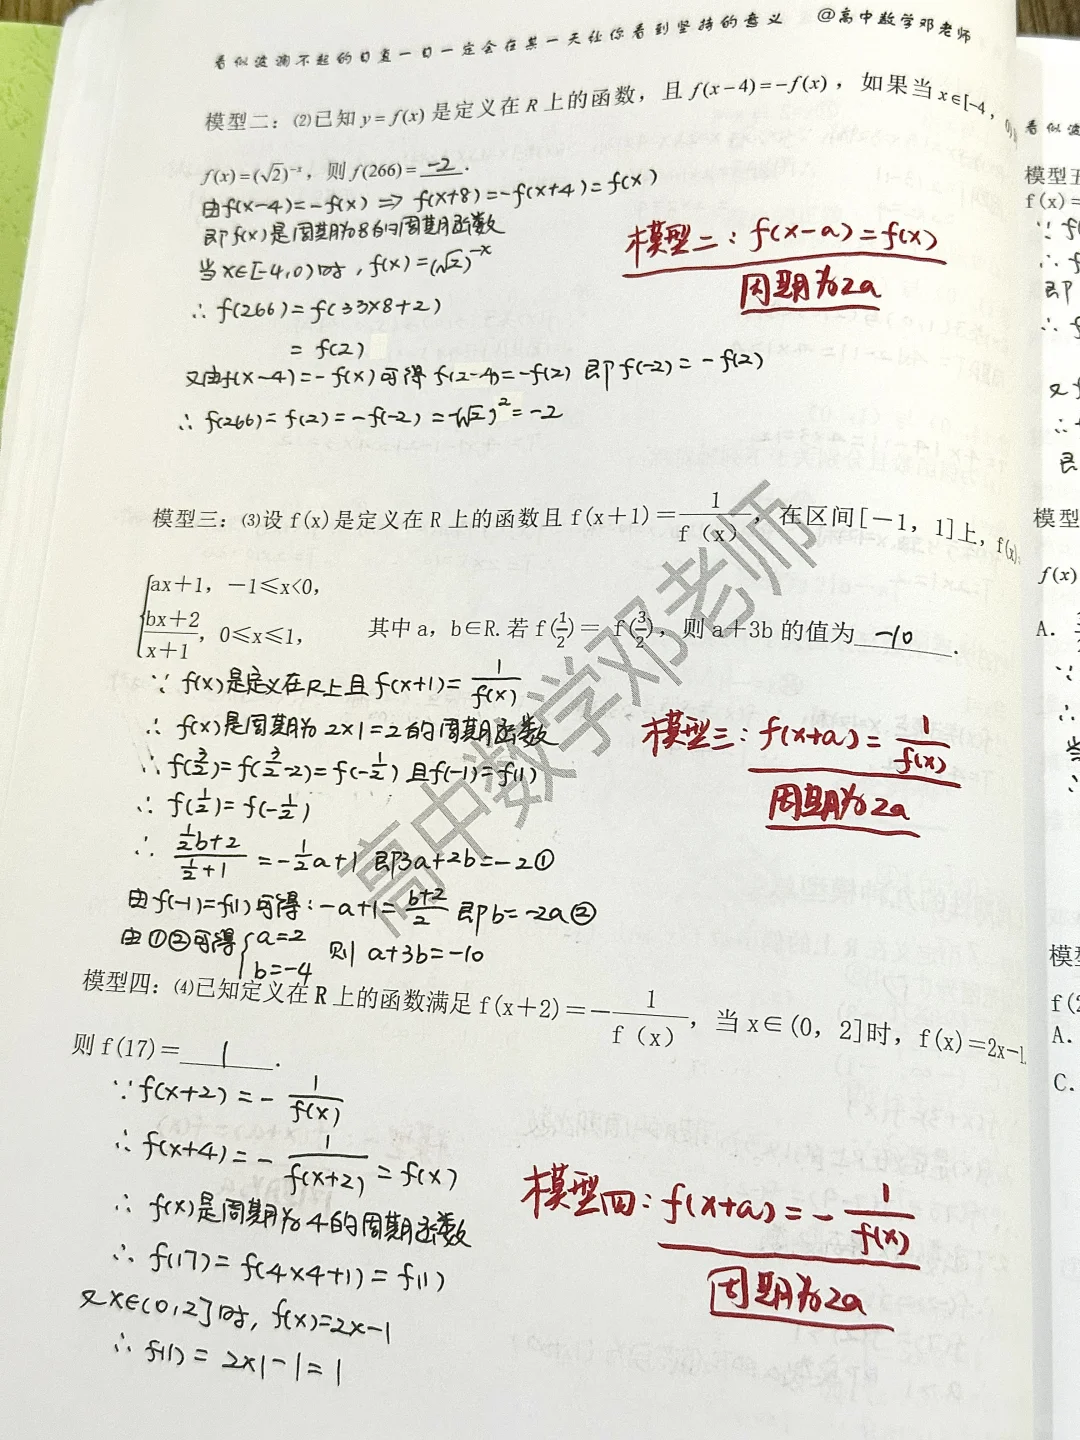 看似波澜不起的日复一日一定会在某一天让你看到坚持的意义 @高中数学邓老师
模型二：⑵已知 y = f(x) 是定义在 R 上的函数，且 f(x-4) = -f(x)，如果当 x∈[-4，0)
f(x) = (√2)⁻ˣ，则 f(266) = -2.
由f(x-4)=-f(x) ⇒ f(x+8)=-f(x+4)=f(x)
即f(x)是周期为8的周期函数
当x∈[-4,0)时，f(x)=(√2)⁻ˣ
∴ f(266)=f(33×8+2)
= f(2)
又由f(x-4)=-f(x)可得 f(2-4)=-f(2) 即f(-2)=-f(2)
∴ f(266)=f(2)=-f(-2)=-(√2)²=-2
模型二：f(x-a)=f(x)
周期为2a
模型三：⑶设 f(x)是定义在 R 上的函数且 f(x+1)=1/f(x)，在区间[-1，1]上，f(x)=
{ax+1，-1≤x<0，
(bx+2)/(x+1)，0≤x≤1， 其中 a，b∈R.若 f(1/2)= f(3/2)，则 a+3b 的值为 -10 .
∵ f(x)是定义在R上且 f(x+1)=1/f(x)
∴ f(x)是周期为 2×1=2的周期函数
∴ f(3/2)=f(3/2-2)=f(-1/2) 且f(-1)=f(1)
∴ f(1/2)=f(-1/2)
∴ (1/2b+2)/(1/2+1)=-1/2a+1 即3a+2b=-2①
由f(-1)=f(1)可得：-a+1=(b+2)/2 即b=-2a②
由①②可得{a=2
b=-4 则 a+3b=-10
模型三：f(x+a)=1/f(x)
周期为2a
模型四：⑷已知定义在 R 上的函数满足 f(x+2)=-1/f(x)，当 x∈(0，2]时，f(x)=2x-1
则 f(17)= 1 .
∵ f(x+2)=-1/f(x)
∴ f(x+4)=-1/f(x+2)=f(x)
∴ f(x)是周期为4的周期函数
∴ f(17)=f(4×4+1)=f(1)
又x∈(0,2]时，f(x)=2x-1
∴ f(1)=2×1-1=1
模型四：f(x+a)=-1/f(x)
周期为2a
高中数学邓老师
看似波
模型五
f(x)=
∵ f
∴ f
即
∴ f
又f
∴
即
模型
f(x)
A.
∵
∴
当
∴
模型
f(2
A.
C.